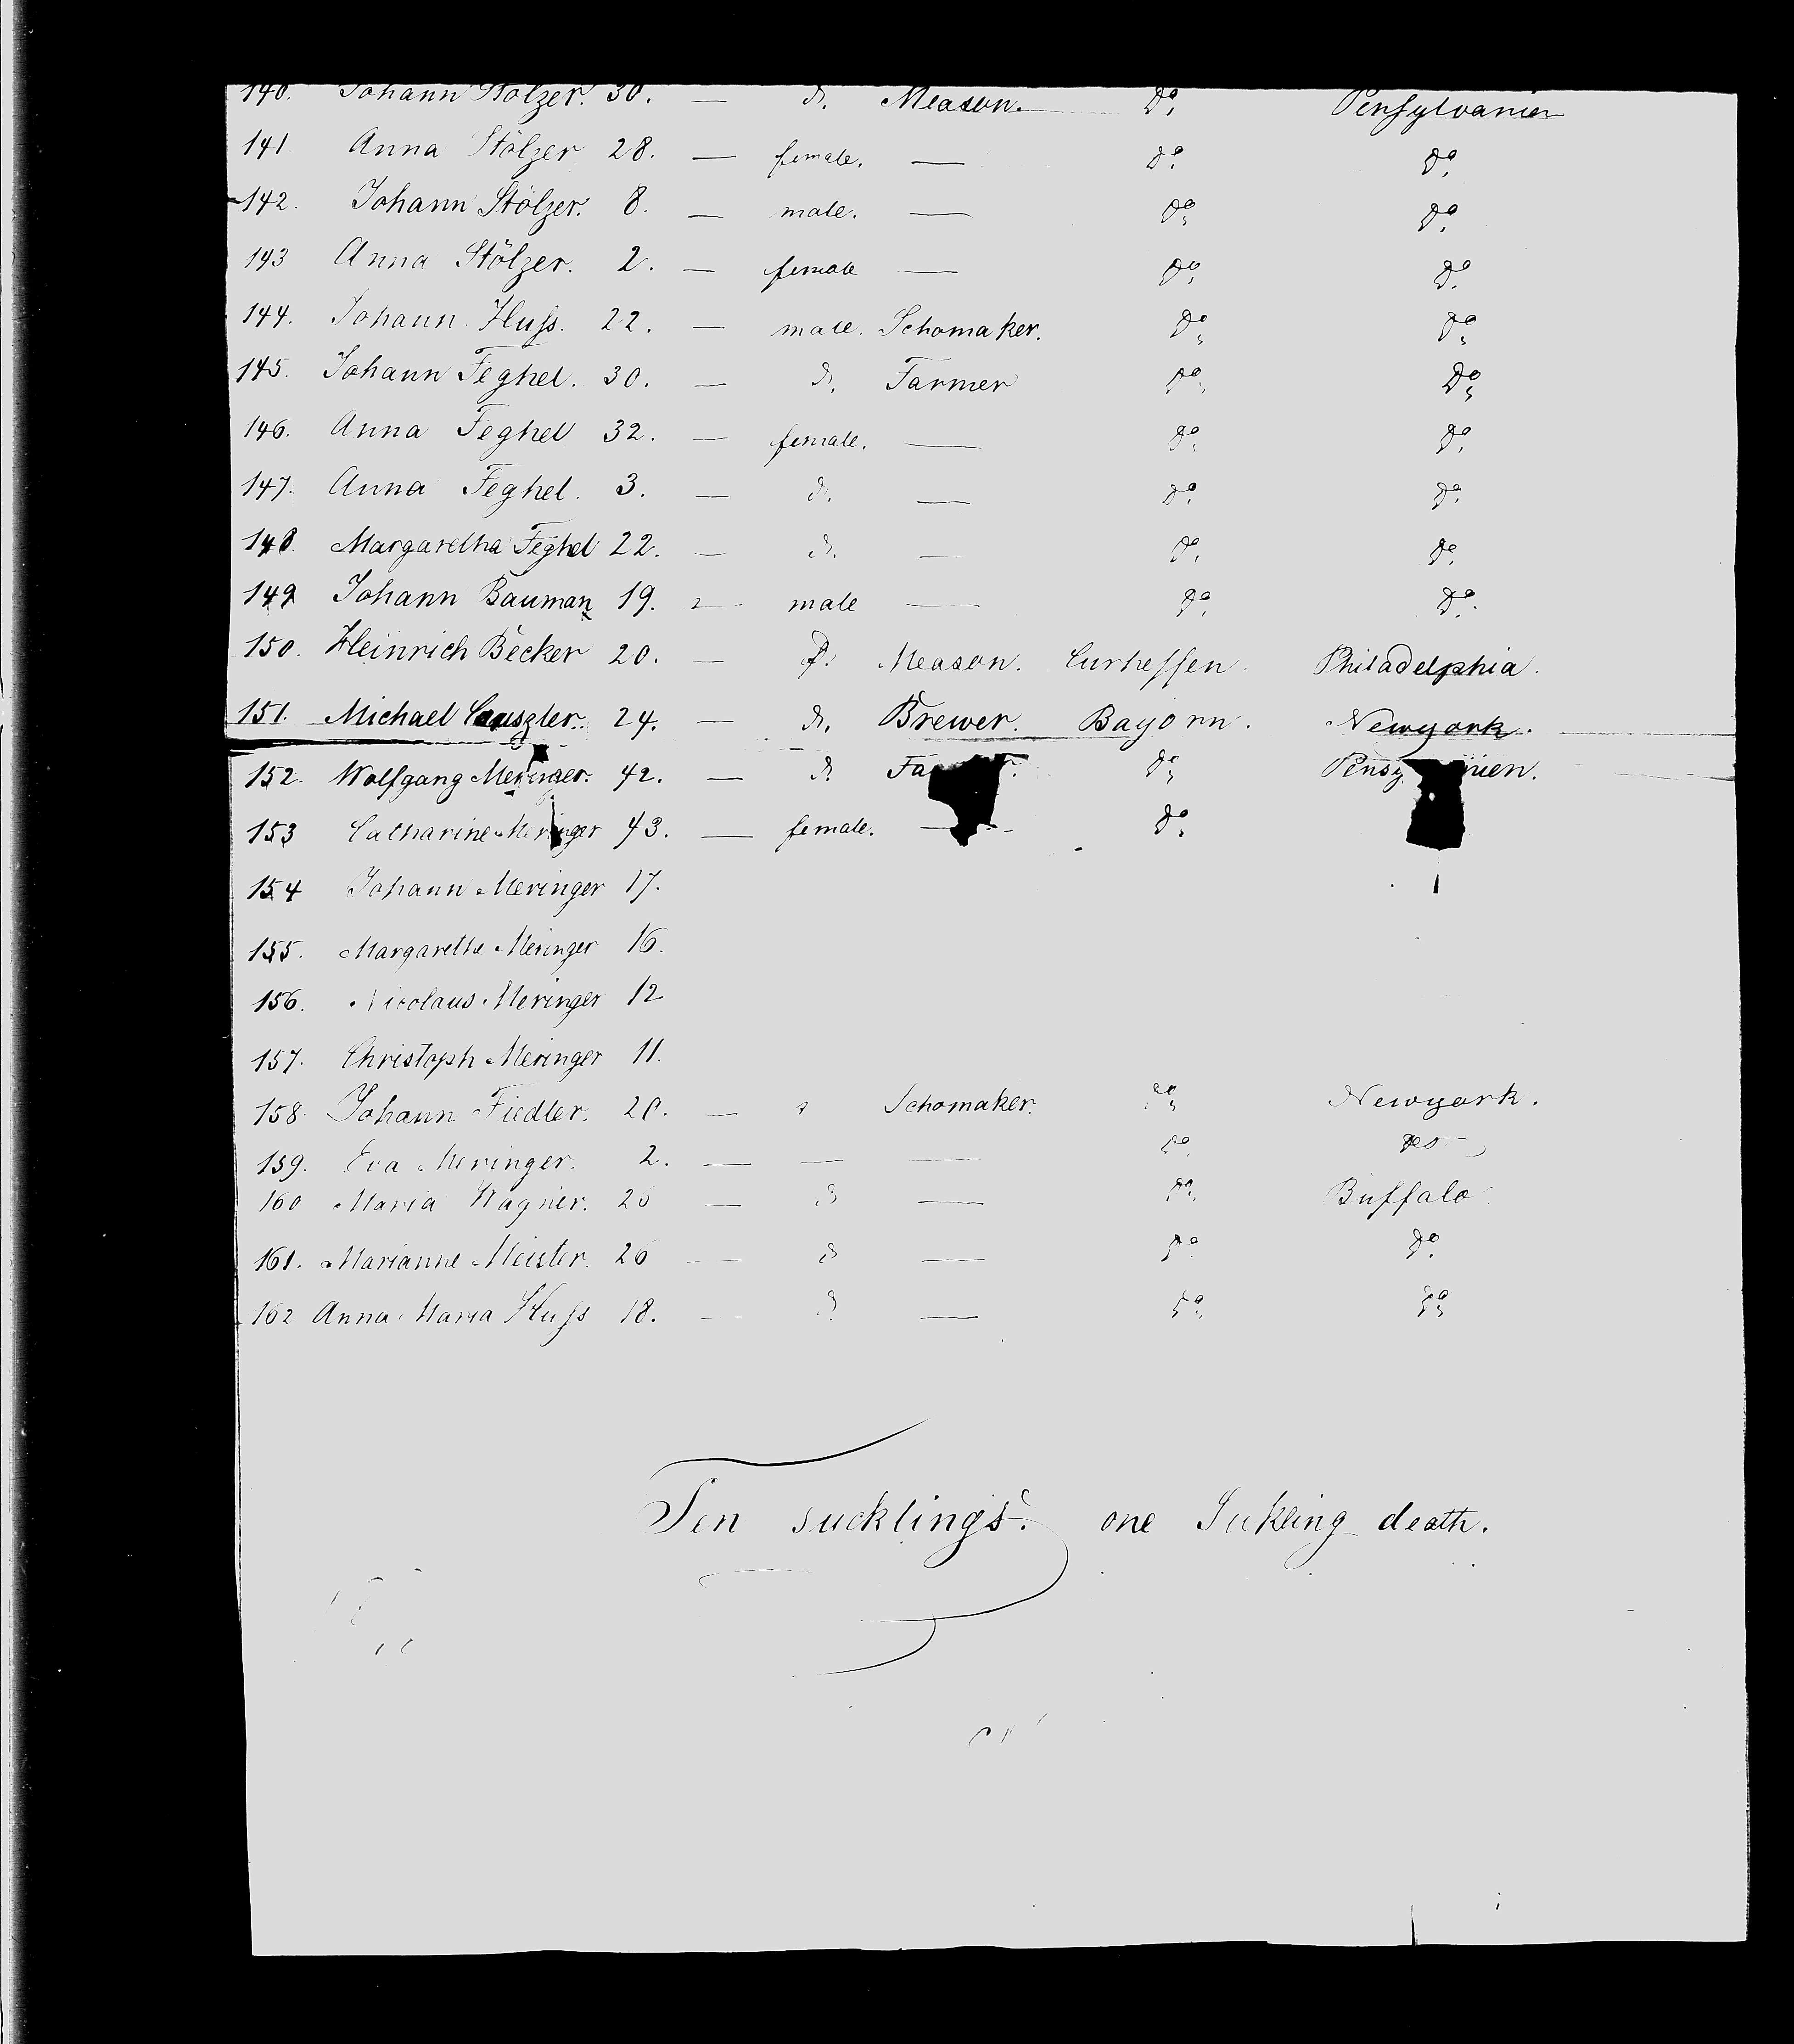 140. Johann Stölzer. 30. — do. Meason. do. Pensylvanien
141 Anna Stölzer 28. — female. — do. do.
142. Johann Stölzer. 8. — male. — do. do.
143 Anna Stölzer. 2. — female — do. do.
144. Johann Huss. 22. — male. Schomaker. do. do.
145. Johann Feghel. 30. — do. Farmer do. do.
146. Anna Feghel 32. — female. — do. do.
147. Anna Feghel. 3. — do. — do. do.
148. Margaretha Feghel 22. — do. — do. do.
149 Johann Bauman 19. — male — do. do.
150. Heinrich Becker 20. — do. Meason. Curhessen. Philadelphia.
151. Michael 24. — do. Brewer. Bayorn. Newyork.
152. Wolfgang Meringer. 42. — do. do.
153 Catharine Meringer 43. — female. — do.
154 Johann Meringer 17.
155. Margarethe Meringer 16.
156. Nicolaus Meringer 12
157. Christoph Meringer 11.
158. Johann Fiedler. 20. — Schomaker. do. Newyork.
159. Eva Meringer. 2. — — — do. do
160 Maria Wagner. 26 — do — do. Buffalo
161. Marianne Meister. 26 — do — do. do.
162 Anna Maria Huss 18. — do — do. do.
Ten sucklings. one Sukling death.